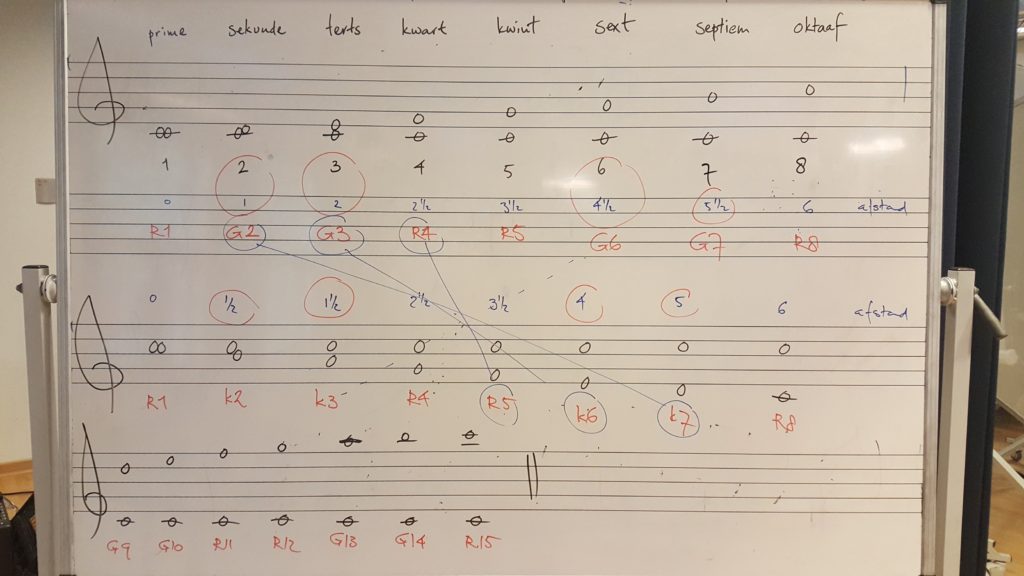 prime sekunde terts kwart kwint sext septiem oktaaf
1 2 3 4 5 6 7 8
0 1 2 2½ 3½ 4½ 5½ 6 afstand
R1 G2 G3 R4 R5 G6 G7 R8
0 ½ 1½ 2½ 3½ 4 5 6 afstand
R1 k2 k3 R4 R5 k6 k7 R8
G9 G10 R11 R12 G13 G14 R15